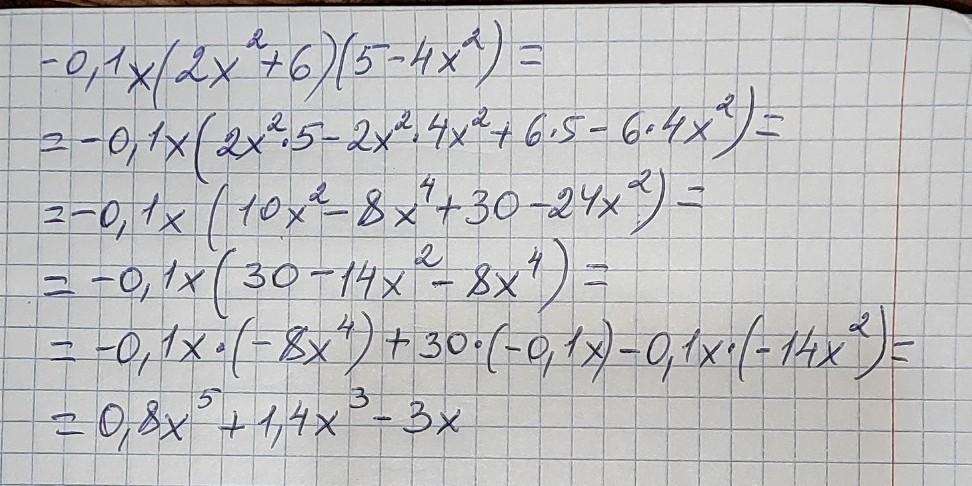 -0,1x(2x²+6)(5-4x²)=
=-0,1x(2x²·5-2x²·4x²+6·5-6·4x²)=
=-0,1x(10x²-8x⁴+30-24x²)=
=-0,1x(30-14x²-8x⁴)=
=-0,1x·(-8x⁴)+30·(-0,1x)-0,1x·(-14x²)=
=0,8x⁵+1,4x³-3x